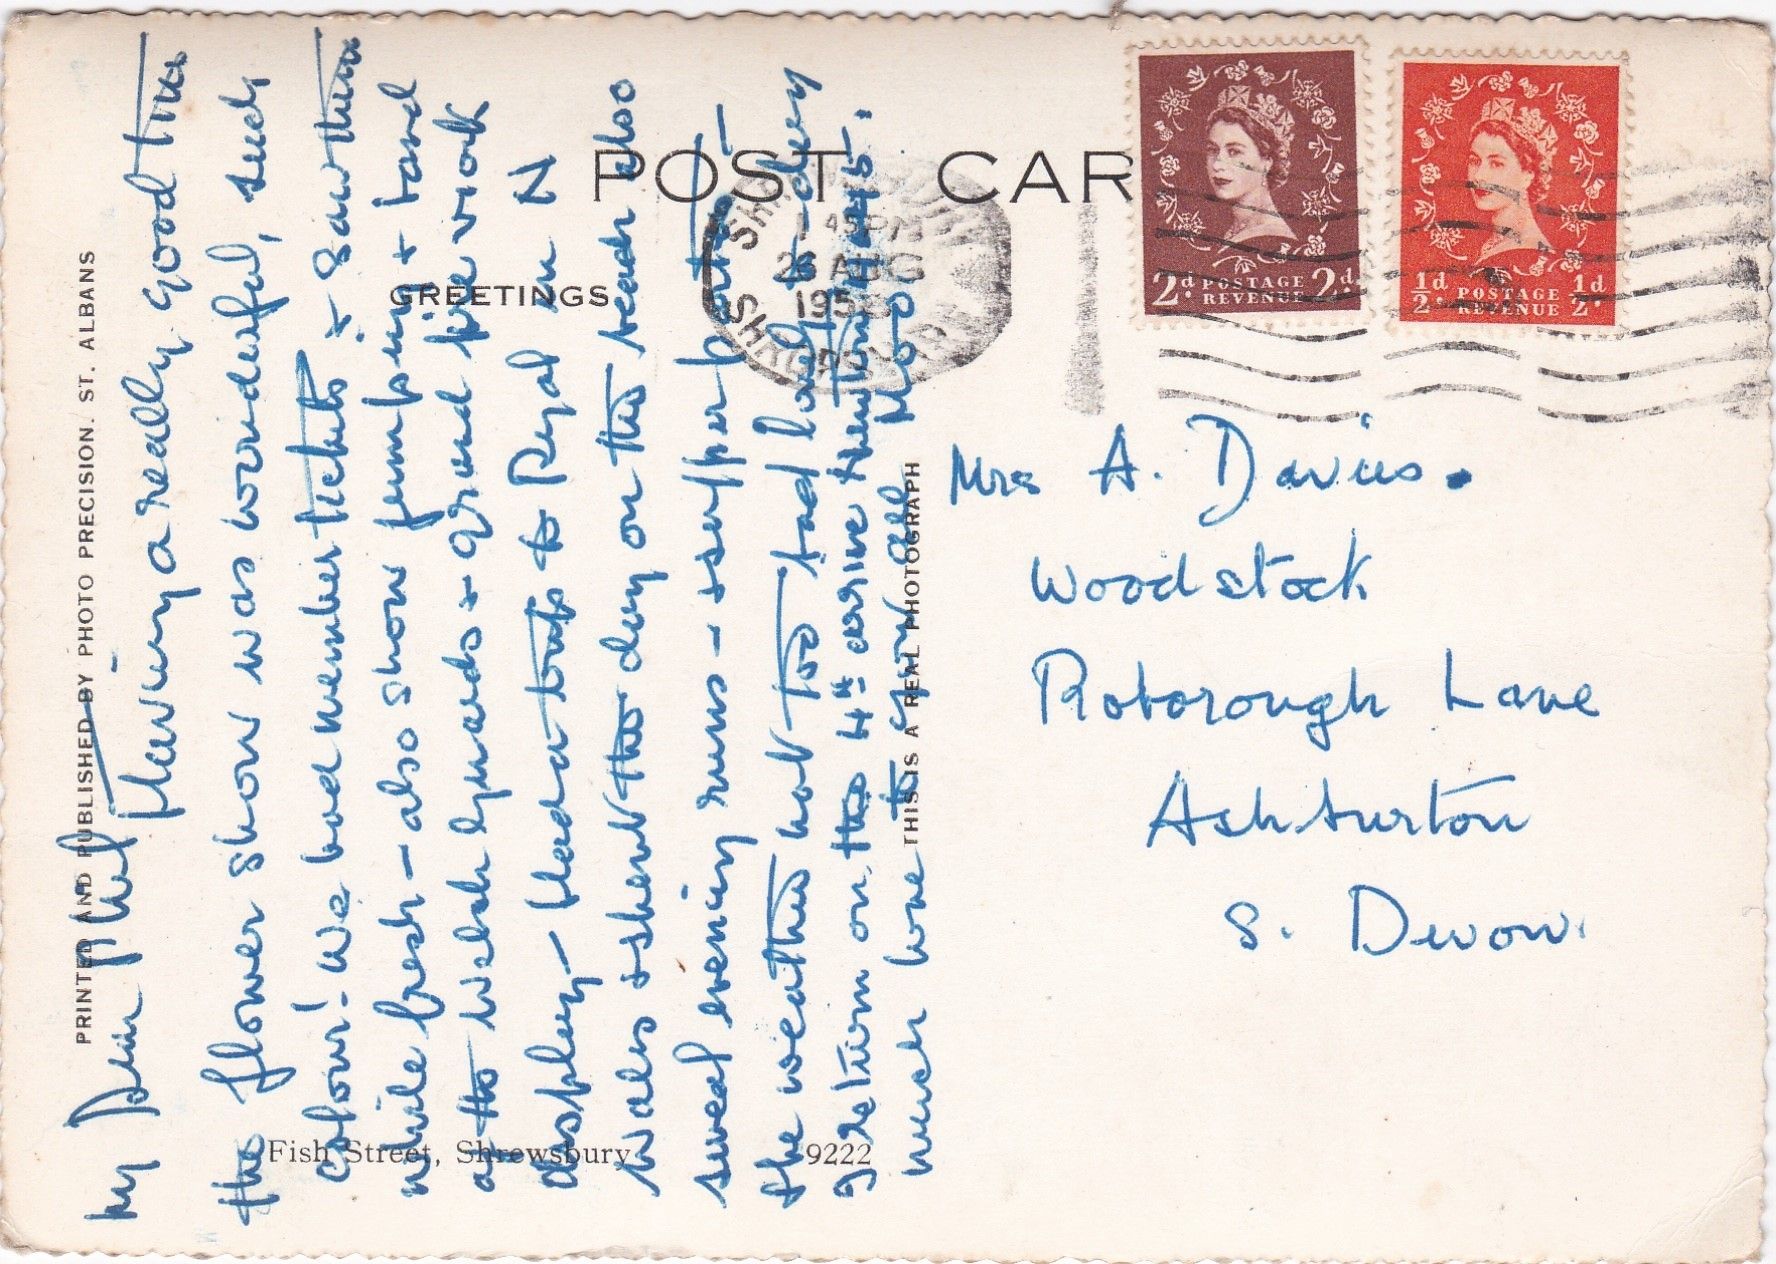 POST CAR
GREETINGS
PRINTED AND PUBLISHED BY PHOTO PRECISION. ST. ALBANS
THIS IS A REAL PHOTOGRAPH
Fish Street, Shrewsbury 9222
SHREWSBURY
1 45 PM
26 AUG
195
SHROPSHIRE
2d. POSTAGE 2d.
REVENUE
1/2d POSTAGE 1/2d
REVENUE
My Dear
Having a really good time
the flower show was wonderful, such
colour! we had member tickets & saw them
while fresh - also show jumping & band
at the Welsh Guards & grand fire work
display - Had a trip to Rhyl in N
Wales & spent the day on the beach also
several evening runs - & supper parties -
the weather not too bad lovely to-day
I return on the 4th arrive Newton 4.45.
much love to you all
Mrs A. Davies.
Woodstock
Roborough Lane
Ashburton
S. Devon.